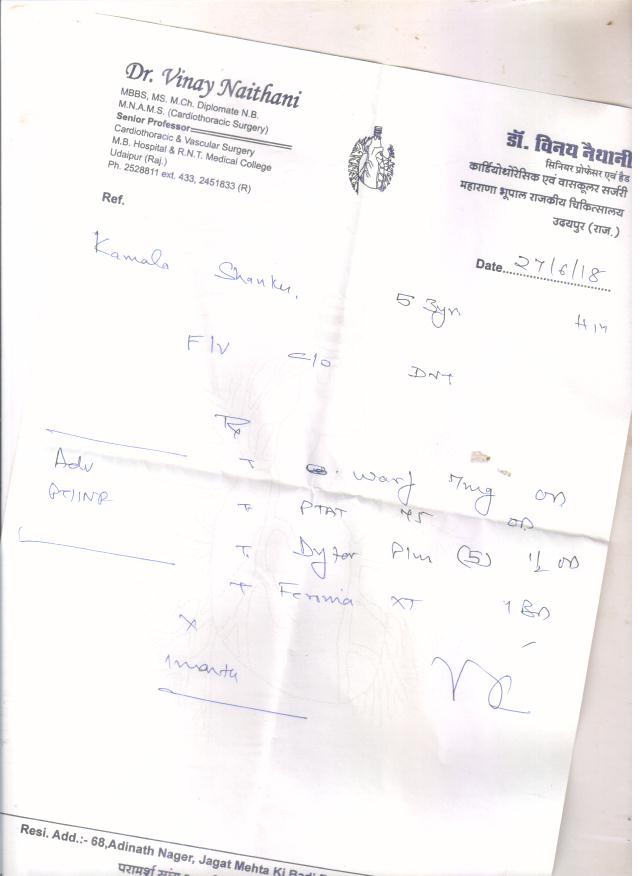 Dr. Vinay Naithani
MBBS, MS. M.Ch. Diplomate N.B.
M.N.A.M.S. (Cardiothoracic Surgery)
Senior Professor
Cardiothoracic & Vascular Surgery
M.B. Hospital & R.N.T. Medical College
Udaipur (Raj.)
Ph. 2528811 ext. 433, 2451833 (R)
डॉ. विनय नैथानी
सिनियर प्रोफेसर एवं हैड
कार्डियोथोरेसिक एवं वासकूलर सर्जरी
महाराणा भूपाल राजकीय चिकित्सालय
उदयपुर (राज.)
Ref.
Date 27/6/18
Kamala Shanker,
F/V c/o
Rx
Adv
PT/INR
T Warf 7mg OD
T PTAT 75 OD
T. Dytor Plus (5) 1/2 OD
T XT 1 BD
x
1 month
Resi. Add.:- 68,Adinath Nager, Jagat Mehta Ki Badi
परामर्श